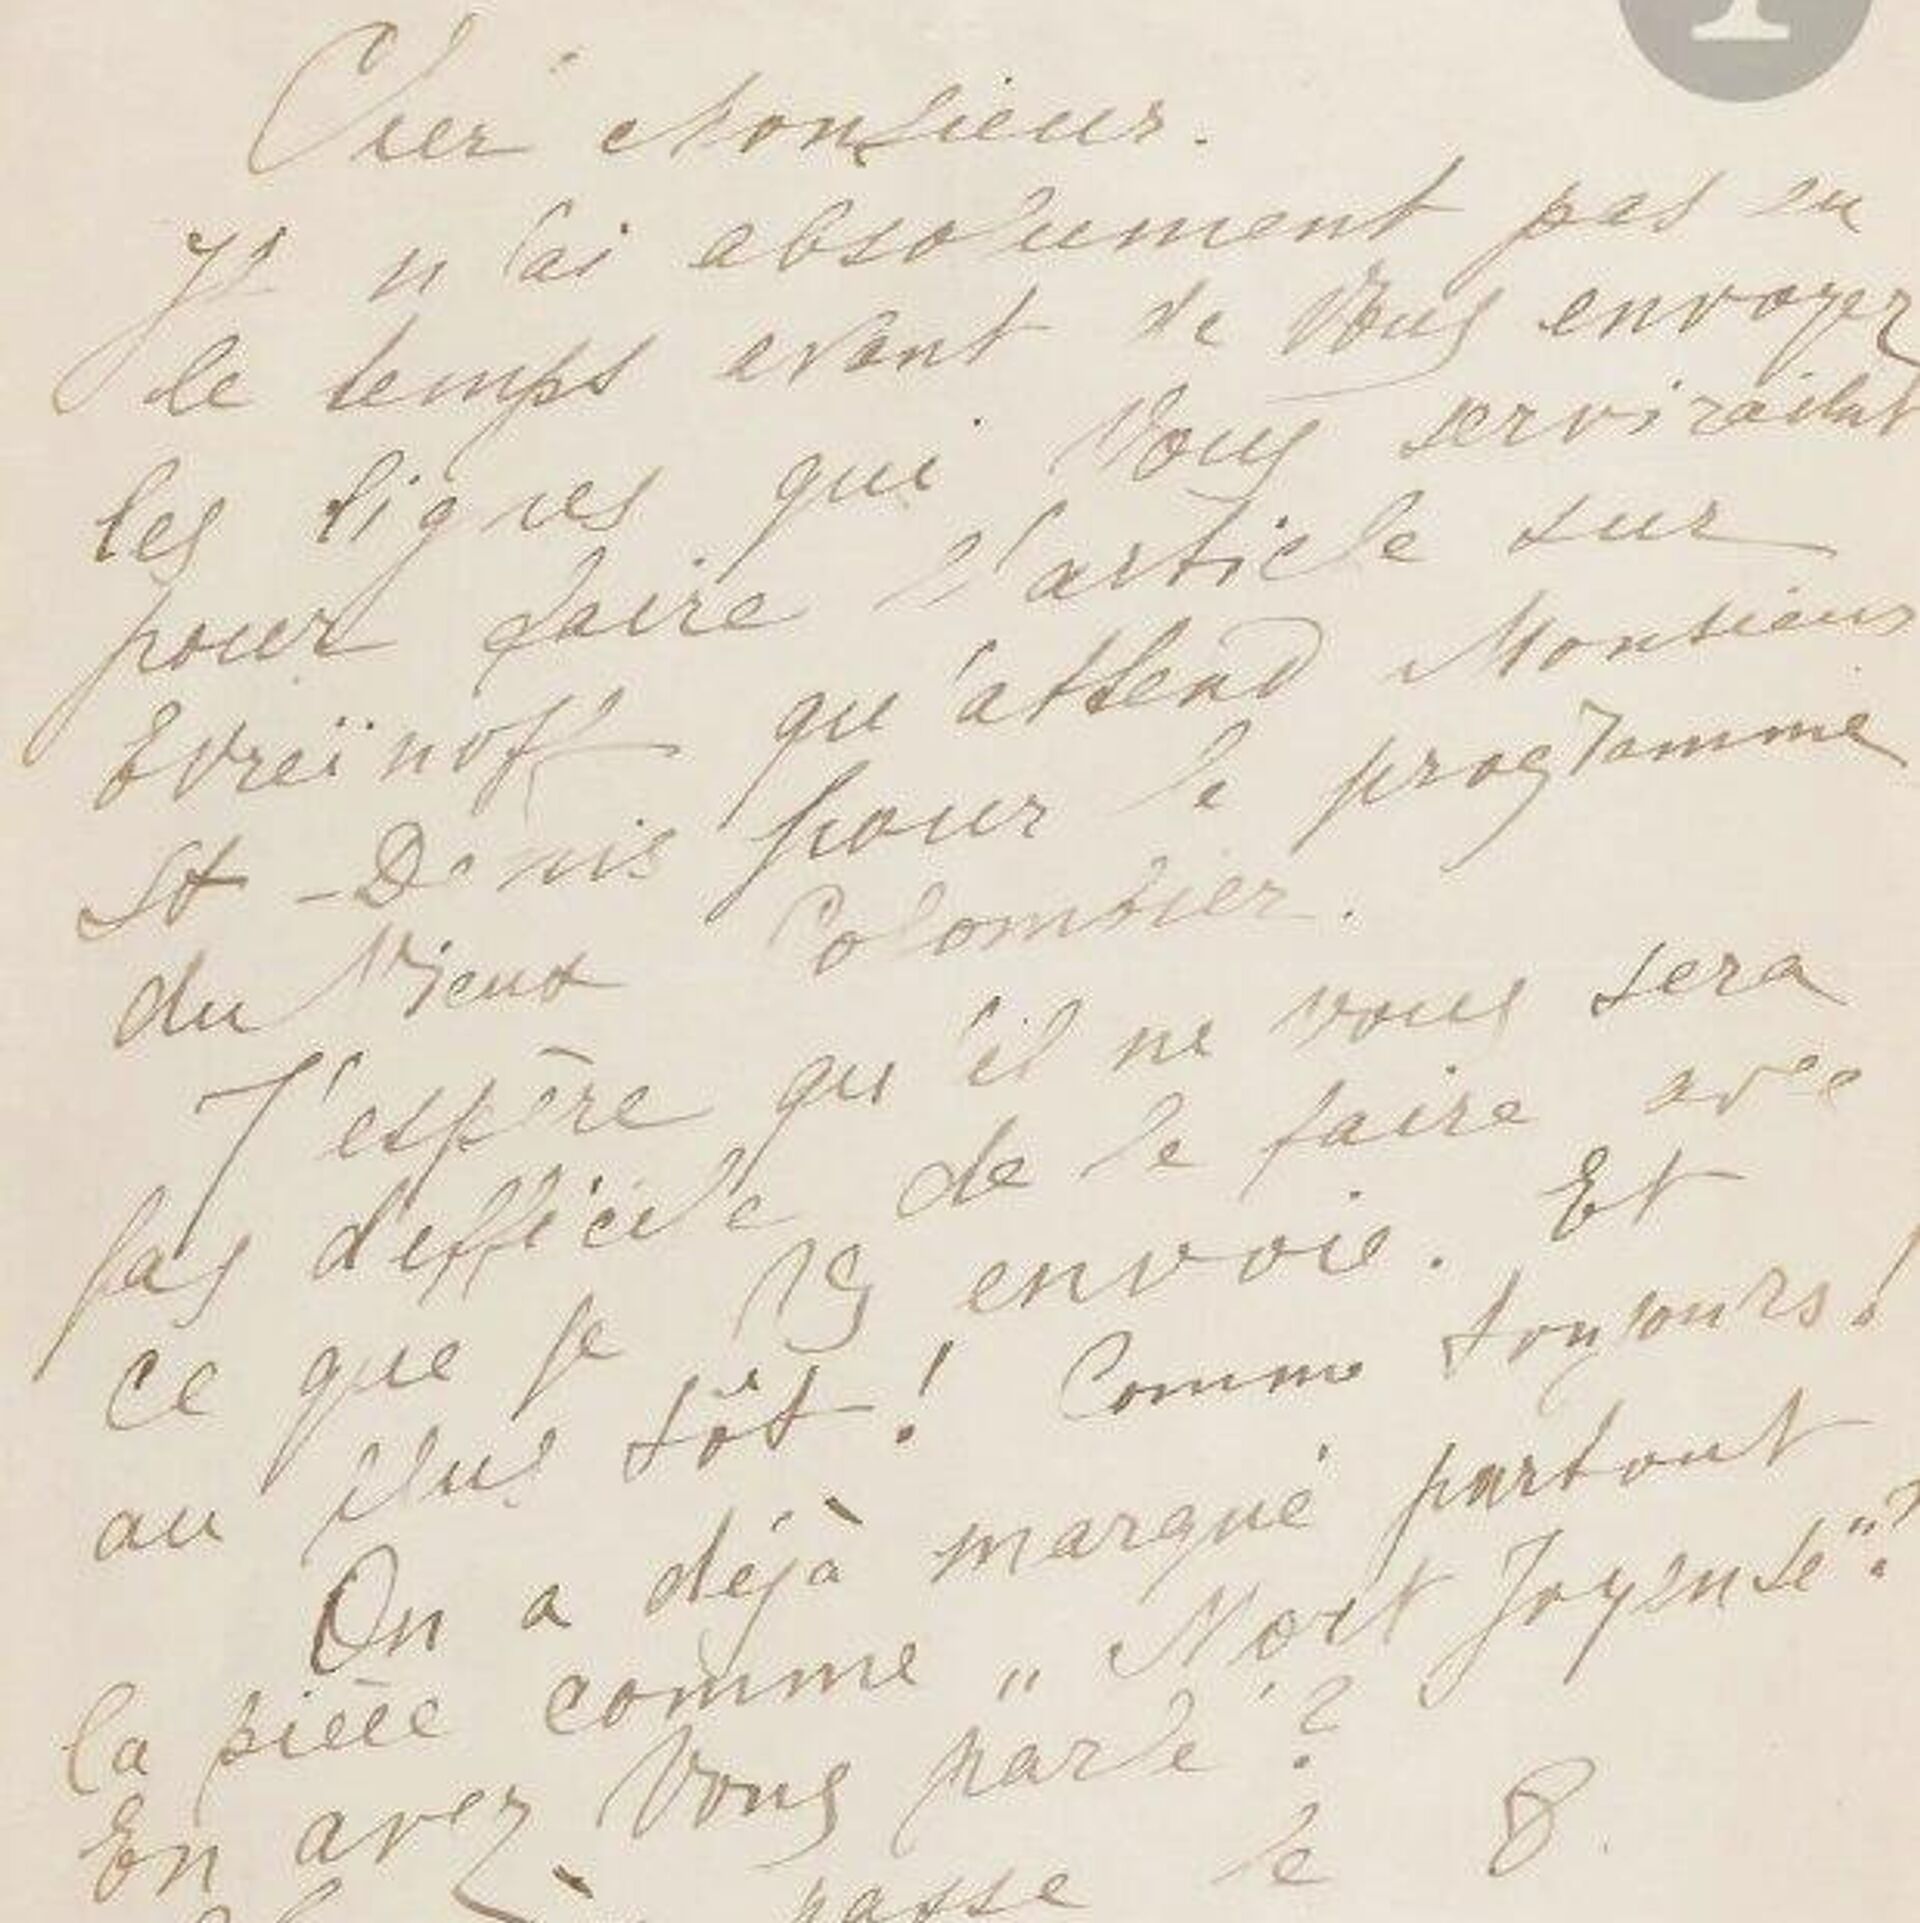 Cher Monsieur.
Je n'ai absolument pas eu
le temps avant de Vous envoyer
les lignes qui Vous serviraient
pour faire l'article sur
Evreïnoff qu'attend Monsieur
St-Denis pour le programme
du Vieux Colombier.
J'espère qu'il ne vous sera
pas difficile de le faire avec
ce que je Vs envoie. Et
au plus tôt! Comme toujours!
On a déjà marqué partout
la pièce comme „Mort Joyeuse"?
En avez Vous parlé?
passe le 8.